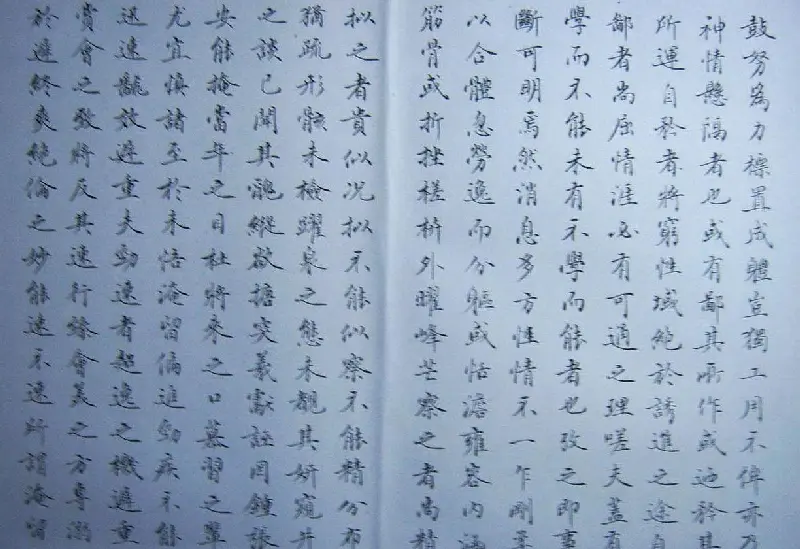 鼓努爲力標置成體豈獨工用不侔亦乃
神情懸隔者也或有鄙其所作或迺矜其
所運自矜者將窮性域絶於誘進之途自
鄙者尚屈情涯必有可通之理嗟夫蓋有
學而不能未有不學而能者也攷之即事
斷可明焉然消息多方性情不一乍剛柔
以合體忽勞逸而分軀或恬澹雍容内涵
筋骨或折挫槎枿外曜峰芒察之者尚精
拟之者貴似况拟不能似察不能精分布
猶疏形骸未檢躍泉之態未覩其妍窺井
之談已聞其醜縱欲搪突羲獻誣罔鍾張
安能掩當年之目杜將來之口慕習之輩
尤宜慎諸至於未悟淹留偏追勁疾不能
迅速飜效遲重夫勁速者超逸之機遲重
賞會之致將反其速行臻會美之方專溺
於遲終爽絶倫之妙能速不速所謂淹留